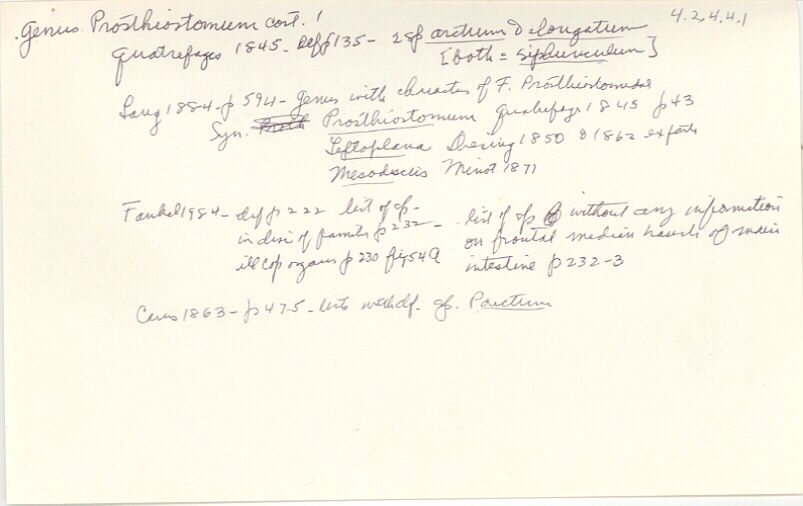 Genus Prosthiostomum cont. 1
4.2.4.4.1
Quatrefages 1845. Def p135 - 2 sp arctum & elongatum
[both = siphunculum]
Lang 1884 - p 594 - genus with characters of F. Prosthiostomidae
Syn. Prosthiostomum Quatrefages 1845 p 43
Leptoplana Diesing 1850 & 1862 ex parte
Mesodiscus Minot 1877
Faubel 1984 - def p 222 list of sp -
in div. of family p 232 -
ill cop organs p 230 fig 54 A
list of sp without any information
on frontal median branch of main
intestine p 232-3
Carus 1863 - p 475 - lists with df. sp. P arctum